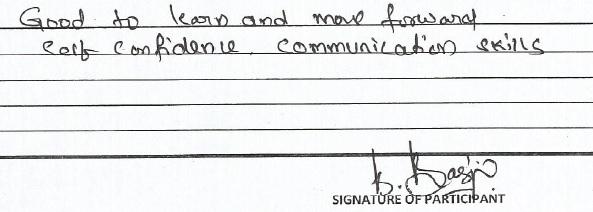 Good to learn and move forward
self confidence, communication skills
SIGNATURE OF PARTICIPANT